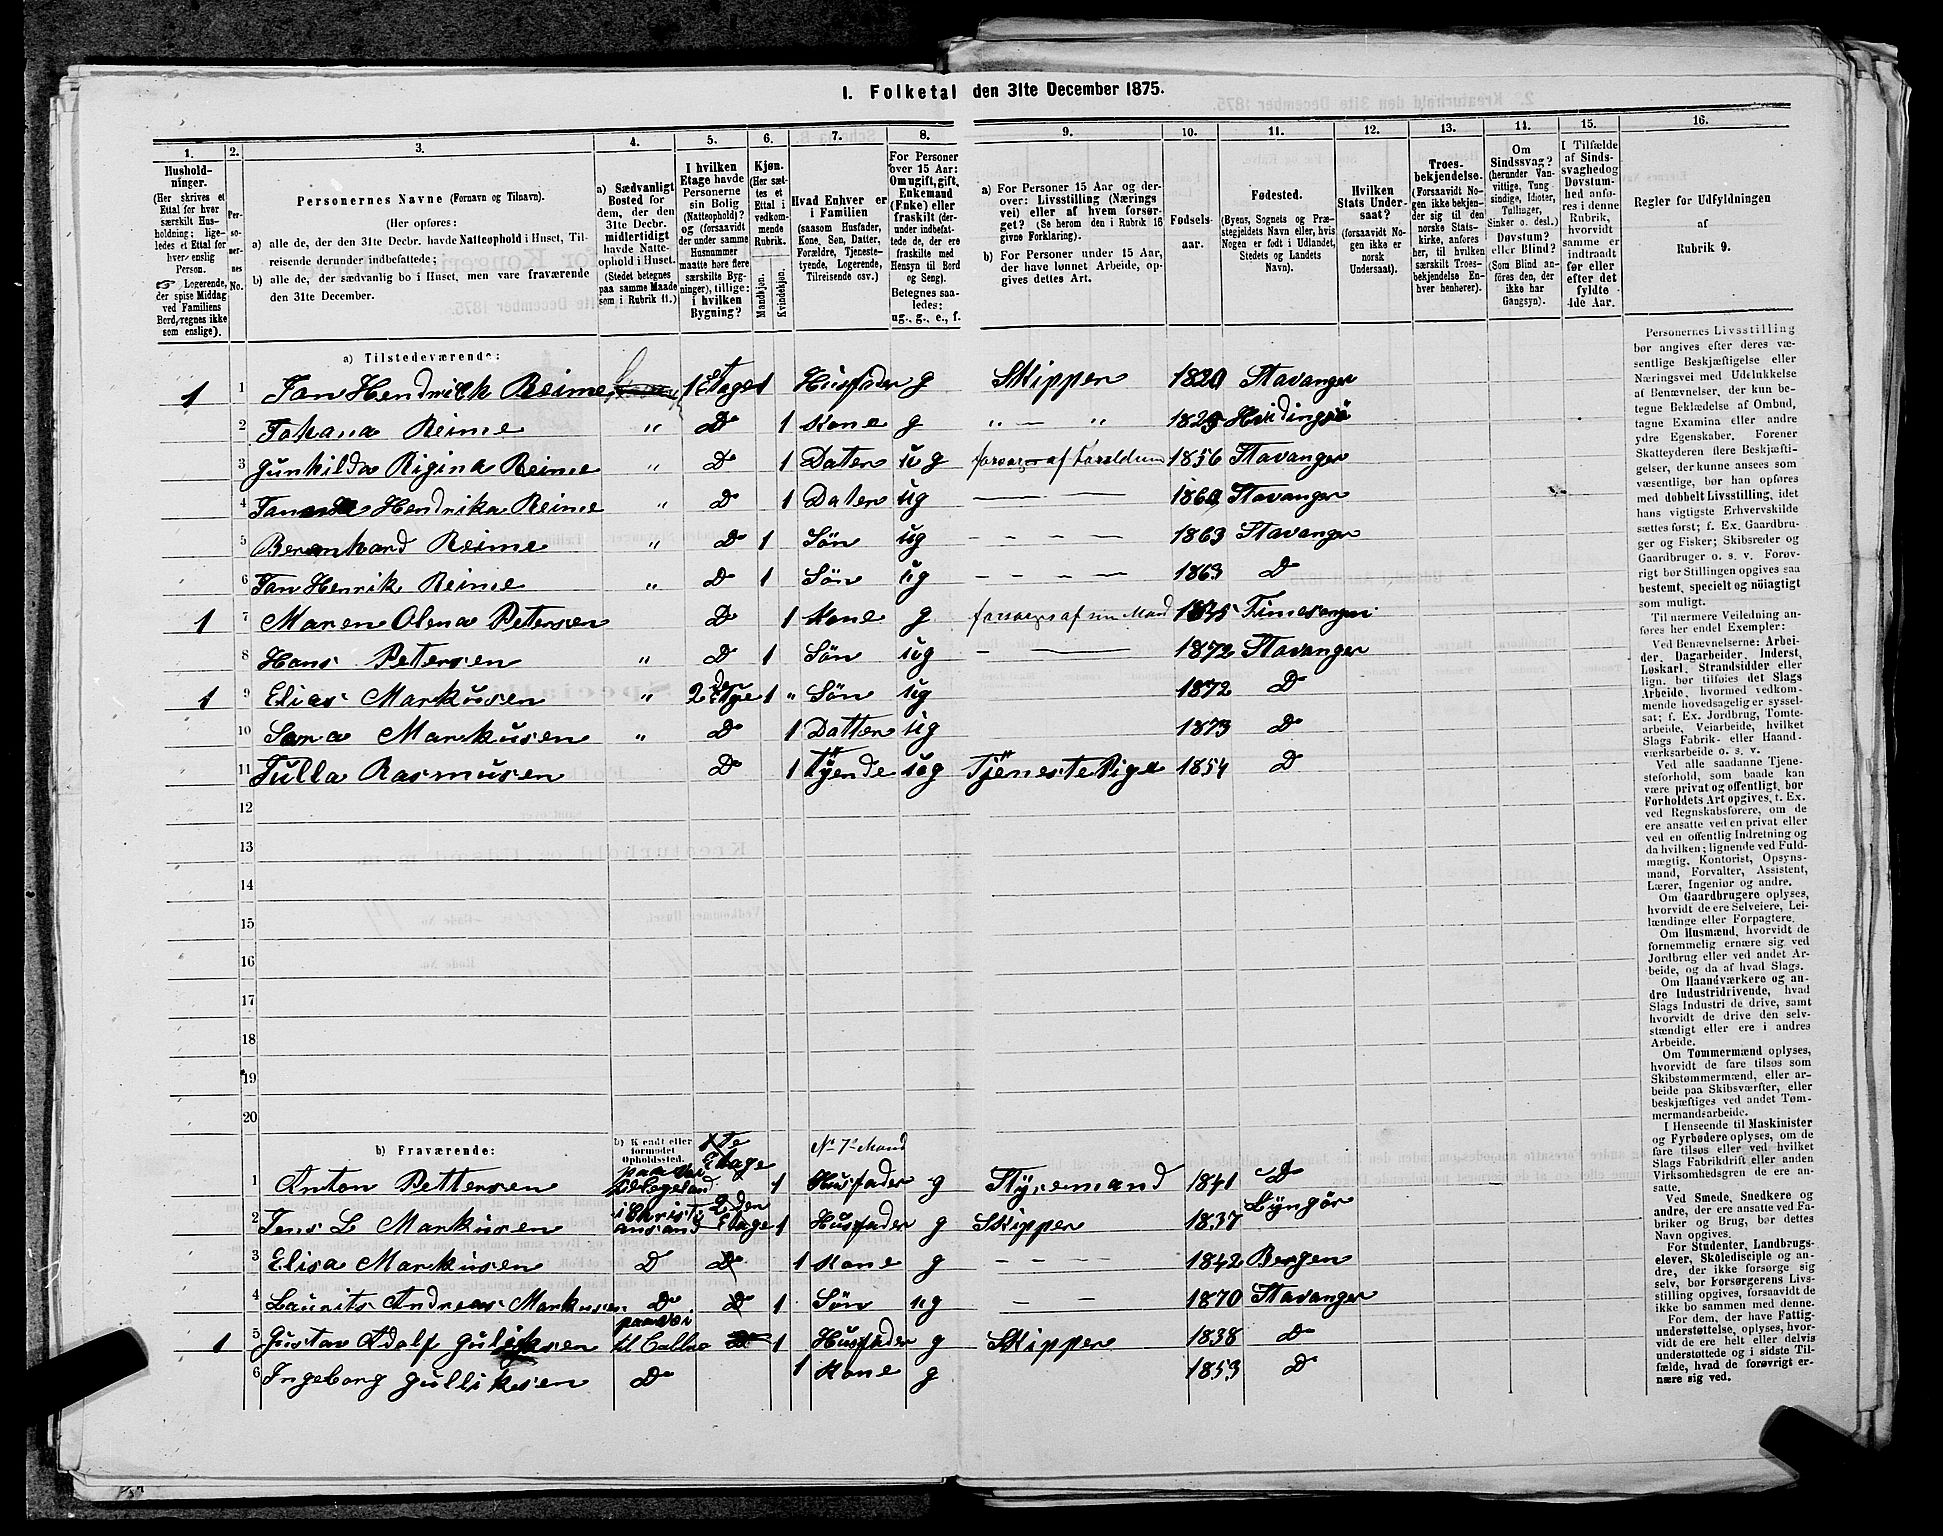 1. Folketal den 31te December 1875.
1. 2. 3. 4. 5. 6. 7. 8. 9. 10. 11. 12. 13. 14. 15. 16.
Hushold-
ninger.
(Her skrives et
Ettal for hver
særskilt Hus-
holdning; lige-
ledes et Ettal for
hver enslig
Person.
☞ Logerende,
der spise Middag
ved Familiens
Bord, regnes ikke
som enslige).
Per-
so-
ner-
nes
No.
Personernes Navne (Fornavn og Tilnavn).
(Her opføres:
a) alle de, der den 31te Decbr. havde Natteophold i Huset, Til-
reisende derunder indbefattede;
b) alle de, der sædvanlig bo i Huset, men vare fraværende
den 31te December.
a) Sædvanligt
Bosted for
dem, der den
31te Decbr.
midlertidigt
havde Natte-
ophold i Huset.
(Stedet betegnes
paa samme Maade
som i Rubrik 11.)
I hvilken
Etage havde
Personerne
sin Bolig
(Natteophold)?
og (forsaavidt
der under samme
Husnummer
maatte høre flere
særskilte Byg-
ninger), tillige:
i hvilken
Bygning?
Kjøn.
(Her sæt-
tes et
Ettal i
vedkom-
mende
Rubrik.
Mandkjøn.
Kvindekjøn.
Hvad Enhver er
i Familien
(saasom Husfader,
Kone, Søn, Datter,
Forældre, Tjeneste-
tyende, Logerende,
Tilreisende osv.)
For Personer
over 15 Aar:
Om ugift, gift,
Enkemand
(Enke) eller
fraskilt (der-
under indbefat-
tede de, der ere
fraskilte med
Hensyn til Bord
og Seng).
Betegnes saa-
ledes:
ug., g., e., f.
a) For Personer 15 Aar og der-
over: Livsstilling (Nærings
vei) eller af hvem forsør-
get? (Se herom den i Rubrik 16
givne Forklaring).
b) For Personer under 15 Aar,
der have lønnet Arbeide, op-
gives dettes Art.
Fødsels-
aar.
Fødested.
(Byens, Sognets og Præ-
stegjeldets Navn eller, hvis
Nogen er født i Udlandet,
Stedets og Landets
Navn).
Hvilken
Stats Under-
saat?
(forsaavidt No-
gen ikke er
norsk
Undersaat).
Troes-
bekjendelse.
(Forsaavidt No-
gen ikke bekjen-
der sig til den
norske Stats-
kirke, anføres
her, til hvilken
særskilt Troes-
bekjendelse En-
hver henhører).
Om
Sindssvag?
(herunder Van-
vittige, Tung
sindige, Idioter,
Tullinger,
Sinker o. desl.)
Døvstum?
eller Blind?
(Som Blind an-
føres den, der
ikke har
Gangsyn).
I Tilfælde
af Sinds-
svaghed og
Døvstum-
hed anfø-
res i denne
Rubrik,
hvorvidt
samme er
indtraadt
før eller
efter det
fyldte
4de Aar.
Regler for Udfyldningen
af
Rubrik 9.
a) Tilstedeværende:
1 1 Jan Hendrick Reime 1 Etage 1 Husfader g Skipper 1820 Stavanger
2 Johana Reime " D 1 Kone g " — " 1829 Hvidingsö
3 Gunhilda Rigina Reime " D 1 Dater ug forsorges af Foreldrene 1856 Stavanger
4 Hendrika Reime " D 1 Dater ug — — — 1860 Stavanger
5 Berenhard Reime " D 1 Søn ug — — — — 1863 Stavanger
6 Jan Henrik Reime " D 1 Søn ug — — — — 1863 D
1 7 Maren Olena Petersen D 1 Kone g forsorges af sin Mand
8 Hans Petersen " D 1 Søn ug — — 1872 Stavanger
1 9 Elias Markusen " 2den Etge 1 " Søn ug 1872 D
10 Sara Markusen " D 1 Datter ug 1873 D
11 Julla Rasmusen D 1 Tyende ug Tjeneste Pige 1854 D
12
13
14
15
16
17
18
19
20
b) Fraværende: b) Kjendt eller
formodet
Opholdssted. 1ste Etage No 7s Mand
1 Anton Pettersen paa Vei til Legeland 1 Husfader g Styremand 1841 D
2 Jens L Markusen i Christiansand 2den Etage 1 Husfader g Skipper 1837 Lyngör
3 Elisa Markusen D D 1 Kone g — — 1842 Bergen
4 Laurits Andreas Markusen D D 1 Søn ug — — 1870 Stavanger
1 5 Gustav Adolf Guliksen paa Vei til Callao D 1 Husfader g Skipper 1838 D
6 Ingeborg Gulliksen D 1 Kone g 1853 D
Personernes Livsstilling
bør angives efter deres væ-
sentlige Beskjæftigelse eller
Næringsvei med Udelukkelse
af Benævnelser, der kun be-
tegne Beklædelse af Ombud,
tagne Examina eller andre
ydre Egenskaber. Forener
Skatteyderen flere Beskjæfti-
gelser, der kunne ansees som
væsentlige, bør han opføres
med dobbelt Livsstilling, idet
hans vigtigste Erhvervskilde
sættes først; f. Ex. Gaardbru-
ger og Fisker; Skibsreder og
Gaardbruger o. s. v. Forøv-
rigt bør Stillingen opgives saa
bestemt, specielt og nöiagtigt
som muligt.
Til nærmere Veiledning an-
føres her endel Exempler:
Ved Benævnelserne: Arbei-
der, Dagarbeider, Inderst,
Løskarl, Strandsidder eller
lign. bør tilføies det Slags
Arbeide, hvormed vedkom-
mende hovedsagelig er syssel-
sat; f. Ex. Jordbrug, Tomte-
arbeide, Veiarbeide, hvilket
Slags Fabrik- eller Haand-
værksarbeide o. s. v.
Ved alle saadanne Tjene-
steforhold, som baade kan
være privat og offentligt, bør
Forholdets Art opgives, t. Ex.
ved Regnskabsførere, om de
ere ansatte ved en privat eller
ved en offentlig Indretning og
da hvilken; lignende ved Fuld-
mægtig, Kontorist, Opsyns-
mand, Forvalter, Assistent,
Lærer, Ingeniør og andre.
Om Gaardbrugere oplyses,
hvorvidt de ere Selveiere, Lei-
lændinge eller Forpagtere.
Om Husmænd, hvorvidt de
fornemmelig ernære sig ved
Jordbrug eller ved andet Ar-
beide, og da af hvad Slags.
Om Haandværkere og an-
dre Industridrivende, hvad
Slags Industri de drive, samt
hvorvidt de drive den selv-
stændigt eller ere i andres
Arbeide.
Om Tømmermænd oplyses,
hvorvidt de fare tilsøs som
Skibstømmermænd, eller ar-
beide paa Skibsværfter, eller
beskjæftiges ved andet Tøm-
mermandsarbeide.
I Henseende til Maskinister
og Fyrbødere oplyses, om de
fare tilsøs eller ved hvilket
Slags Fabrikdrift eller anden
Virksomhedsgren de ere an-
satte.
Ved Smede, Snedkere og
andre, der ere ansatte ved Fa-
briker og Brug, bør dettes
Navn opgives.
For Studenter, Landbrugs-
elever, Skoledisciple og an-
dre, der ikke forsørge sig
selv, bør Forsørgerens Livs-
stilling opgives, forsaavidt de
ikke bo sammen med denne.
For dem, der have Fattig-
understøttelse, oplyses, hvor-
vidt de ere helt eller delvis
understøttede og i sidste Til-
fælde, hvad de forøvrigt er-
nære sig ved.